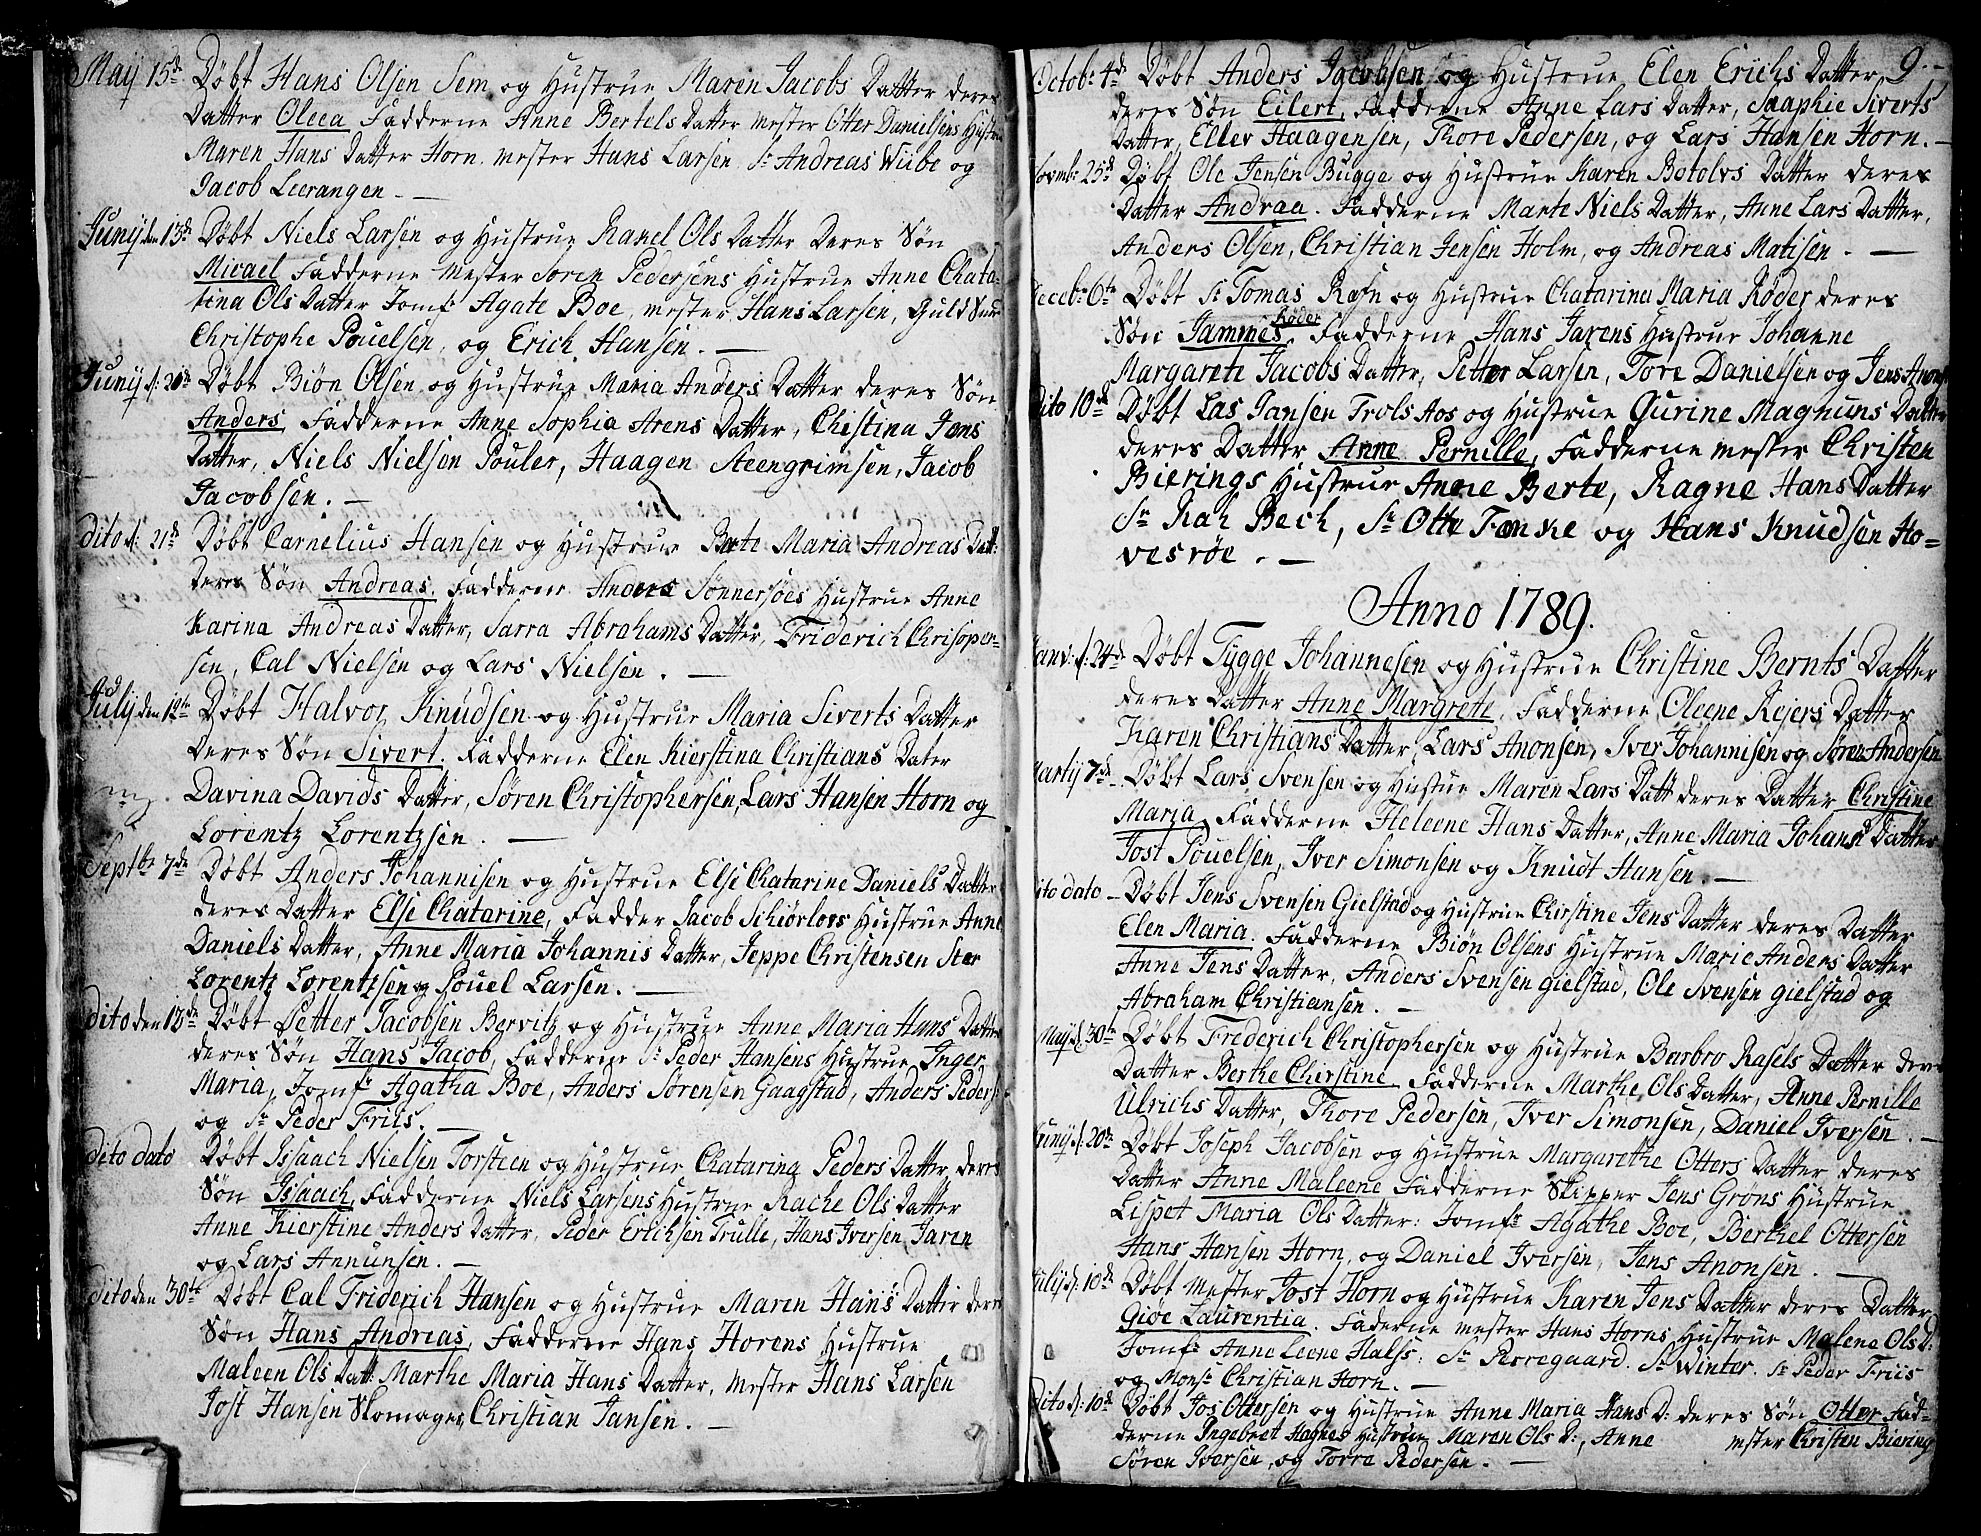 Maij 15de Døbt Hans Olsen Sem og Hustrue Maren Jacobs Datter deres
Datter Oleea Fadderne Anne Bertels Datter mester Otter Danielsens Hustrue
Maren Hans Datter Horn. mester Hans Larsen Sr Andreas Wibe og
Jacob Leerangen. —
Junij den 13de Døbt Niels Larsen og Hustrue Rakel Ols Datter Deres Søn
Micael Fadderne mester Søren Pedersens Hustrue Anne Chata-
rina Ols Datter Jomfr Agate Boe, mester Hans Larsen, Guld
Christophe Pouelsen, og Erich Hansen. —
Junij d: 20de Døbt Biøn Olsen og Hustrue Maria Anders Datter deres Søn
Anders, Fadderne Anne Sophia Arens Datter, Chistina Jens
Datter, Niels Nielsen Pouler, Haagen Steengrimsen, Jacob
Jacobsen. —
Dito d: 21de Døbt Carnelius Hansen og Hustrue Berte Maria Andreas Datt:
Deres Søn Andreas. Fadderne Anders Sønnersøes Hustrue Anne
Karina Andreas Datter, Sarra Abrahams Datter, Friderich Chrisoper-
sen, Cal Nielsen og Lars Nielsen. —
Julij den 12te Døbt Halvor Knudsen og Hustrue Maria Siverts Datter
Deres Søn Sivert. Fadderne Elen Kierstina Christians Dater
Davina Davids Datter, Søren Christophersen, Lars Hansen Horn og
Lorentz Lorentzsen. —
Septbr 7de Døbt Anders Johannisen og Hustrue Else Chatarine Daniels Datter
deres Datter Else Chatarine, Fadder Jacob Schiørloes Hustrue Anne
Daniels Datter, Anne Maria Johannis Datter, Jeppe Christensen Ster
Lorentz Lorentzsen og Pouel Larsen. —
Dito den 12de Døbt Petter Jacobsen Bervitz og Hustrue Anne Maria Hans Datter
deres Søn Hans Jacob, Fadderne Sr Peder Hansens Hustrue Inger
Maria, Jomfr Agatha Boe, Anders Sørensen Gaagstad, Anders Peders:
og Sr Peder Friis. —
Dito dato Døbt Issaach Nielsen Torsteen og Hustrue Chatarina Peders Datter deres
Søn Issaach, Fadderne Niels Larsens Hustrue Rache Ols Datter
Anne Kierstine Anders Datter, Peder Erichsen Trulle, Hans Iversen Jaren
og Lars Annunsen. —
Dito den 30te Døbt Cal Friderich Hansen og Hustrue Maren Hans Datter deres
Søn Hans Andreas, Fadderne Hans Horens Hustrue
Maleen Ols Datt: Marthe Maria Hans Datter, mester Hans Larsen
Jost Hansen Skomager, Christian Jansen. —
9. —
Octob: 4de Døbt Anders Jacobsen og Hustrue Elen Erichs Datter,
deres Søn Eilert, Fadderne Anne Lars Datter, Saaphie Siverts
Datter, Ellev Haagensen, Thore Pedersen, og Lars Hansen Horn. —
Novmbr 25de Døbt Ole Jensen Bugge og Hustrue Karen Botolvs Datter deres
Datter Andrea. Fadderne Marte Niels Datter, Anne Lars Datter,
Anders Olsen, Christian Jensen Holm, og Andreas Matisen. —
Deceb: 6te Døbt Sr Tomas Ræfn og Hustrue Chatarina Maria Røder deres
Røder
Søn Jammes, Fadderne Hans Jarens Hustrue Johanne
Margarete Jacobs Datter, Petter Larsen, Tore Danielsen og Jens Anons:
Dito 10de Døbt Las Jansen Trols Aos og Hustrue Gurine Magnuns Datter
deres Datter Anne Pernille, Fadderne mester Christen
Bierings Hustrue Anne Berte, Ragne Hans Datter
Sr Rah Bech, Sr Otte Fønke og Hans Knudsen Ho=
vesrøe. —
Anno 1789.
Janv: d: 24de Døbt Tygge Johannesen og Hustrue Christine Bernts Datter
deres Datter Anne Margrete, Fadderne Oleene Rejers Datter
Karen Christians Datter, Lars Anonsen, Iver Johannisen og Søren Andersen
Martij 7de Døbt Lars Svensen og Hustue Maren Lars Datt deres Datter Christine
Maria, Fadderne Heleene Hans Datter, Anne Maria Johans Datter
Jost Pouelsen, Iver Simonsen og Knudt Hansen. —
Dito dato — Døbt Jens Svensen Gielstad og Hustrue Chirstine Jens Datter deres Datter
Elen Maria. Fadderne Biøn Olsens Hustrue Marie Anders Datter
Anne Jens Datter, Anders Svensen gielstad, Ole Svensen gielstad og
Abraham Christiansen. —
Maij d: 30te Døbt Frederich Christophersen og Hustrue Barbro Rasels Datter deres
Datter Berthe Chirstine Fadderne Marthe Ols Datter, Anne Pernille
Ulrichs Datter, Thore Pedersen, Iver Simonsen, Daniel Iversen. —
Junij d: 20de Døbt Joseph Jacobsen og Hustrue Margarethe Otters Datter deres
Datter Anne Maleene Fadderne Skipper Jens Grøns Hustrue
Lispet Maria Ols Datter: Jomfr Agathe Boe, Berthel Ottersen
Hans Hansen Horn, og Daniel Iversen, Jens Anonsen. —
Julij d: 10de Døbt mester Jost Horn og Hustrue Karen Jens Datter deres Datter
Giøe Laurentia. Faderne mester Hans Horns Hustrue Malene Ols D:
Jomfr Anne Leene Halfs: Sr Perregaard. Sr Winter. Sr Peder Friis
og Monsr Christian Horn. —
Dito d: 10de Døbt Jos Ottersen og Hustrue Anne Maria Hans D: deres Søn Otter Fad-
derne Ingebret Hagnes Hustrue Maren Ols D:, Anne mester Christen Biering
Søren Iversen, og Torre Pedersen. —